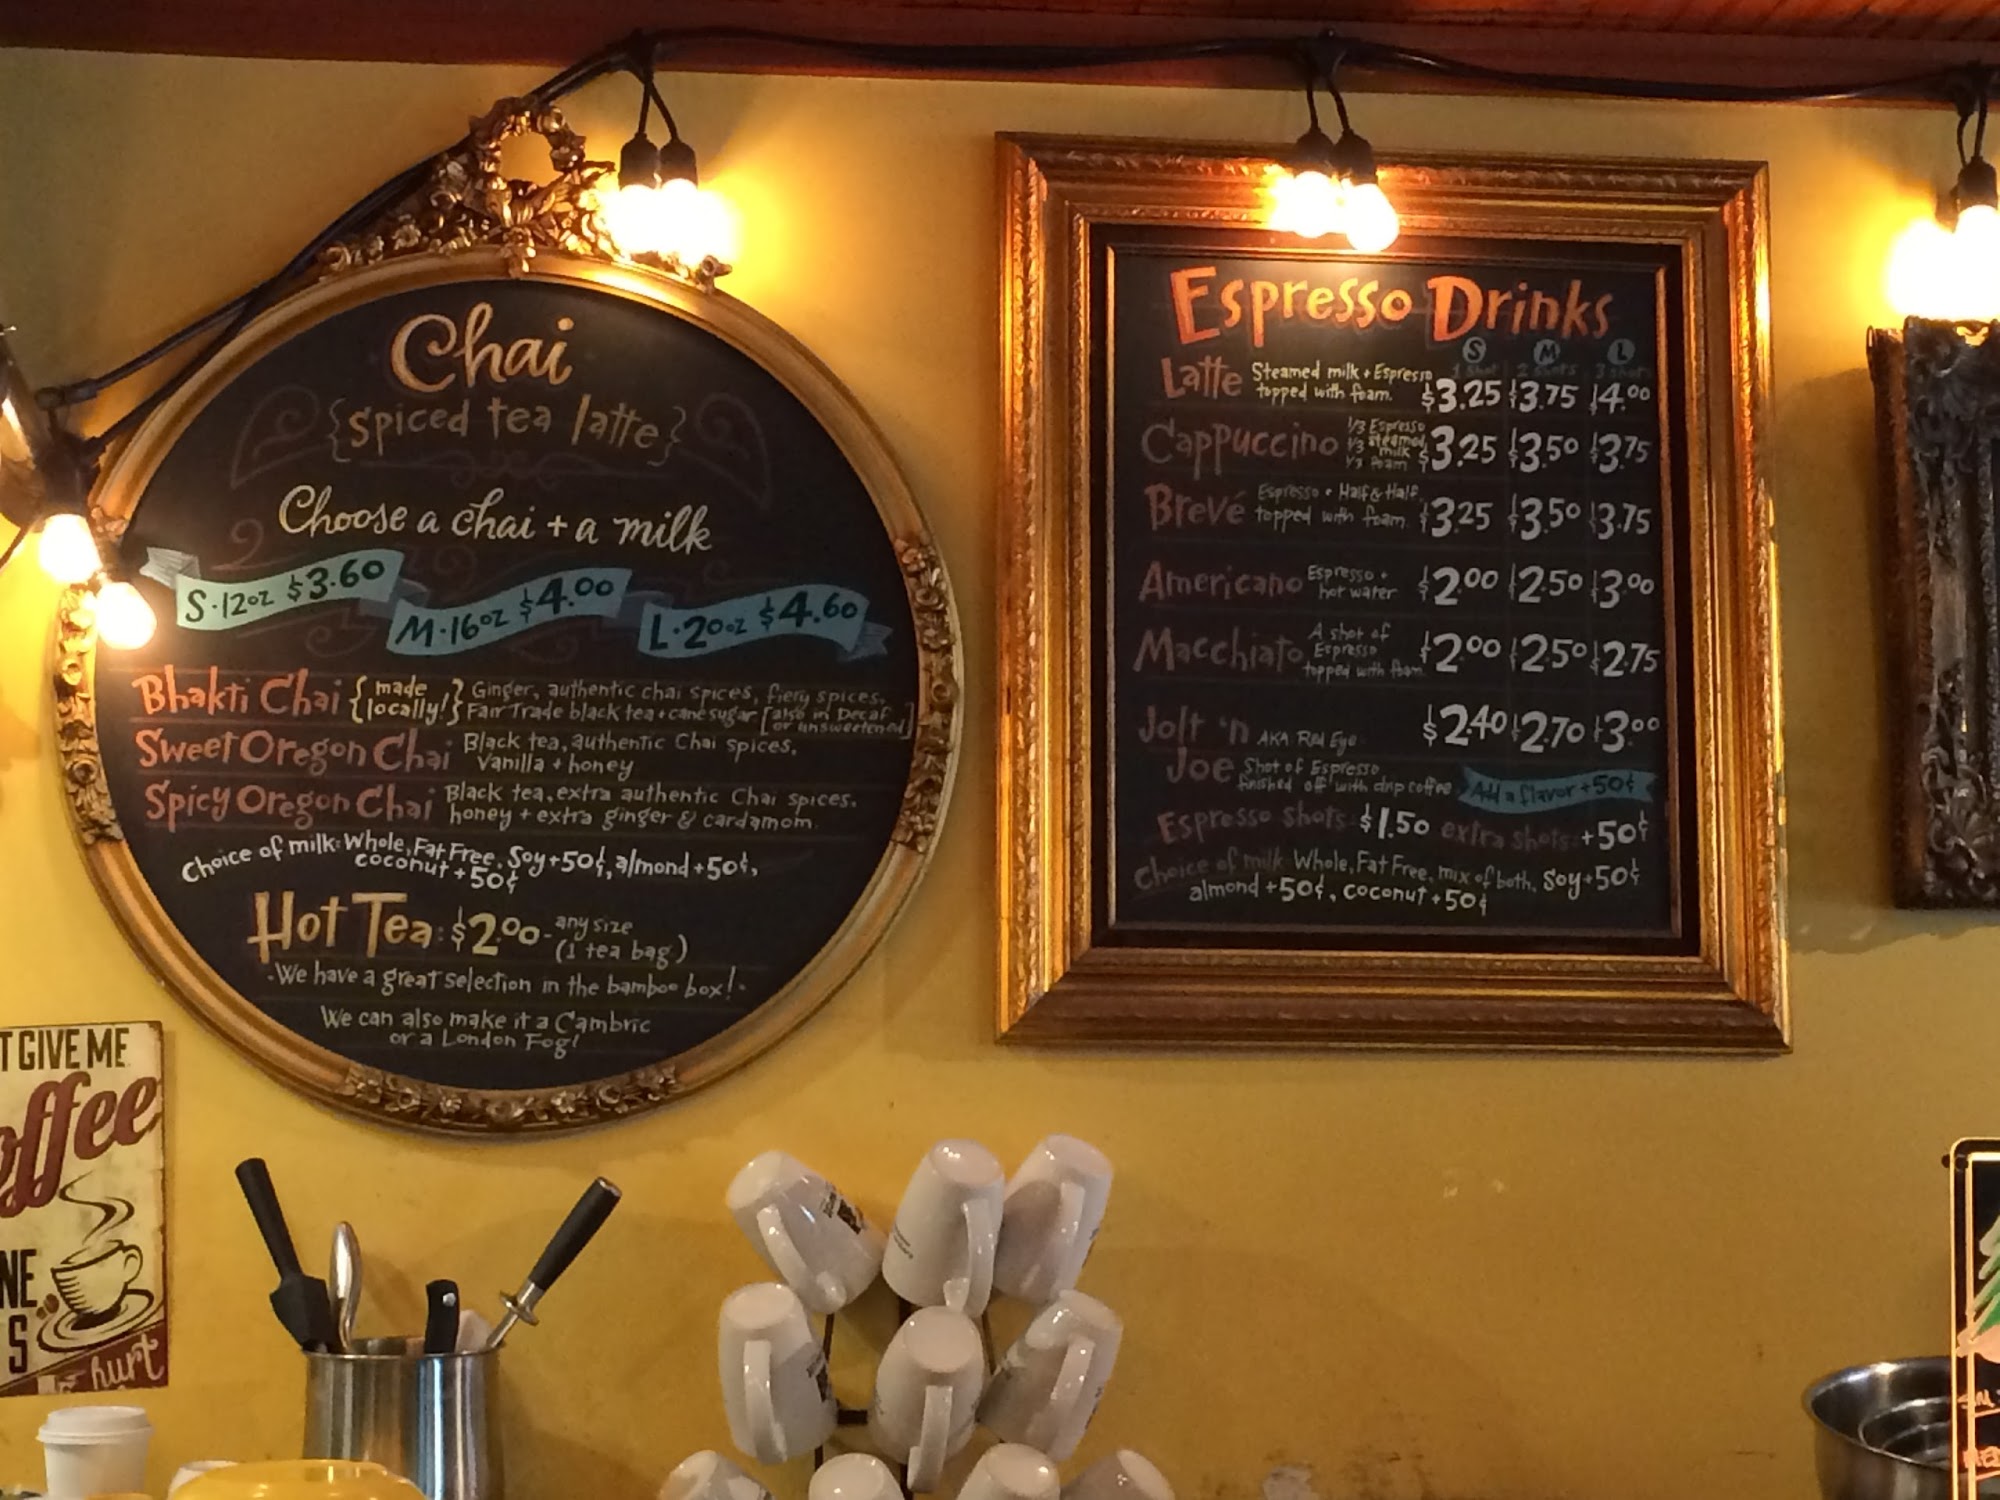 Chai
{spiced tea latte}
Choose a chai + a milk
S·12oz $3.60
M·16oz $4.00
L·20oz $4.60
Bhakti Chai {made locally!} Ginger, authentic chai spices, fiery spices,
Fair Trade black tea + cane sugar [also in Decaf
or unsweetened]
Sweet Oregon Chai Black tea, authentic Chai spices,
Vanilla + honey
Spicy Oregon Chai Black tea, extra authentic Chai spices,
honey + extra ginger & cardamom.
Choice of milk: Whole, Fat Free, Soy +50¢, almond +50¢,
coconut +50¢
Hot Tea: $2.00 - any size
(1 tea bag)
-We have a great selection in the bamboo box!-
We can also make it a Cambric
or a London Fog!
Espresso Drinks
S M L
1 shot 2 shots 3 shots
Latte Steamed milk + Espresso
topped with foam. $3.25 $3.75 $4.00
Cappuccino 1/3 Espresso
1/3 steamed milk
1/3 foam $3.25 $3.50 $3.75
Brevé Espresso + Half & Half
topped with foam. $3.25 $3.50 $3.75
Americano Espresso +
hot water $2.00 $2.50 $3.00
Macchiato A shot of
Espresso
topped with foam. $2.00 $2.50 $2.75
Jolt 'n AKA Red Eye $2.40 $2.70 $3.00
Joe Shot of Espresso
finished off with drip coffee
Add a flavor +50¢
Espresso shots: $1.50 extra shots: +50¢
Choice of milk Whole, Fat Free, mix of both, Soy +50¢
almond +50¢, coconut +50¢
T GIVE ME
offee
NE
S
hurt